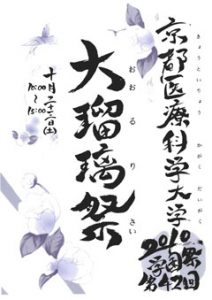 京都医療科学大学
きょうといりょう かがく だいがく
2010
学園祭
第42回
大瑠璃祭
おおるりさい
十月二十三日(土)